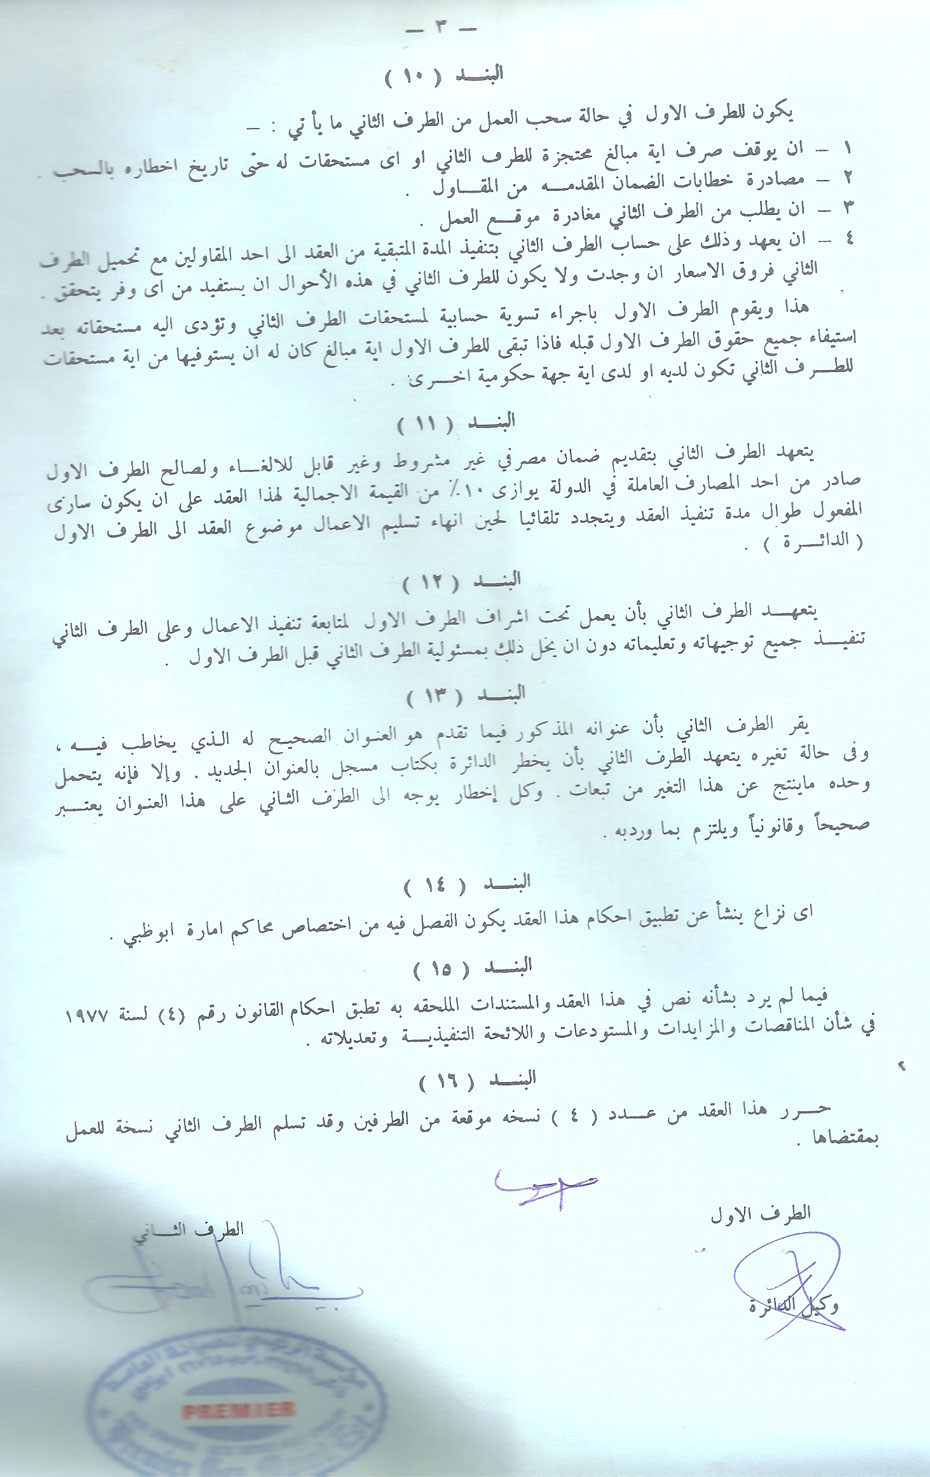 — ٣ —
البنـــد ( ١٠ )
يكون للطرف الاول في حالة سحب العمل من الطرف الثاني ما يأتي : —
١ — ان يوقف صرف اية مبالغ محتجزة للطرف الثاني او اى مستحقات له حتى تاريخ اخطاره بالسحب .
٢ — مصادرة خطابات الضمان المقدمـــه من المقـــاول .
٣ — ان يطلب من الطرف الثاني مغادرة موقـــع العمل .
٤ — ان يعهد وذلك على حساب الطرف الثاني بتنفيذ المدة المتبقية من العقد الى احد المقاولين مع تحميل الطرف
الثاني فروق الاسعار ان وجدت ولا يكون للطرف الثاني في هذه الأحوال ان يستفيد من اى وفر يتحقق .
هذا ويقوم الطرف الاول باجراء تسوية حسابية لمستحقات الطرف الثاني وتؤدى اليه مستحقاته بعد
استيفاء جميع حقوق الطرف الاول قبله فاذا تبقى للطرف الاول اية مبالغ كان له ان يستوفيها من اية مستحقات
للطـــرف الثاني تكون لديه او لدى اية جهة حكومية اخـــرى .
البنـــد ( ١١ )
يتعهد الطرف الثاني بتقديم ضمان مصرفي غير مشروط وغير قابل للالغـــاء ولصالح الطرف الاول
صادر من احد المصارف العاملة في الدولة يوازى ١٠٪ من القيمة الاجمالية لهذا العقد على ان يكون سارى
المفعول طوال مدة تنفيذ العقد ويتجدد تلقائيا لحين انهاء تسليم الاعمال موضوع العقد الى الطرف الاول
( الدائـــرة ) .
البنـــد ( ١٢ )
يتعهـــد الطرف الثاني بأن يعمل تحت اشراف الطرف الاول لمتابعة تنفيذ الاعمال وعلى الطرف الثاني
تنفيـــذ جميع توجيهاته وتعليماته دون ان يخل ذلك بمسئولية الطرف الثاني قبل الطرف الاول .
البنـــد ( ١٣ )
يقر الطرف الثاني بأن عنوانه المذكور فيما تقدم هو العنوان الصحيح له الـذي يخاطب فيـــه ،
وفى حالة تغيره يتعهد الطرف الثاني بأن يخطر الدائرة بكتاب مسجل بالعنوان الجديد . وإلا فإنه يتحمل
وحده ماينتج عن هذا التغير من تبعات . وكل إخطار يوجه الى الطرف الثـاني على هذا العنـوان يعتـــبر
صحيحاً وقانونياً ويلتزم بما وردبه .
البنـــد ( ١٤ )
اى نزاع ينشأ عن تطبيق احكام هذا العقد يكون الفصل فيه من اختصاص محاكم امارة ابوظبي .
البنـــد ( ١٥ )
فيما لم يرد بشأنه نص في هذا العقد والمستندات الملحقه به تطبق احكام القانون رقم (٤) لسنة ١٩٧٧
في شأن المناقصات والمزايدات والمستودعات واللائحة التنفيذيـــة وتعديلاته .
البنـــد ( ١٦ )
حـــرر هذا العقد من عـــدد ( ٤ ) نسخه موقعة من الطرفين وقد تسلم الطرف الثاني نسخة للعمل
بمقتضاها .
الطرف الاول
الطرف الثـــاني
وكيل الدائرة
PREMIER